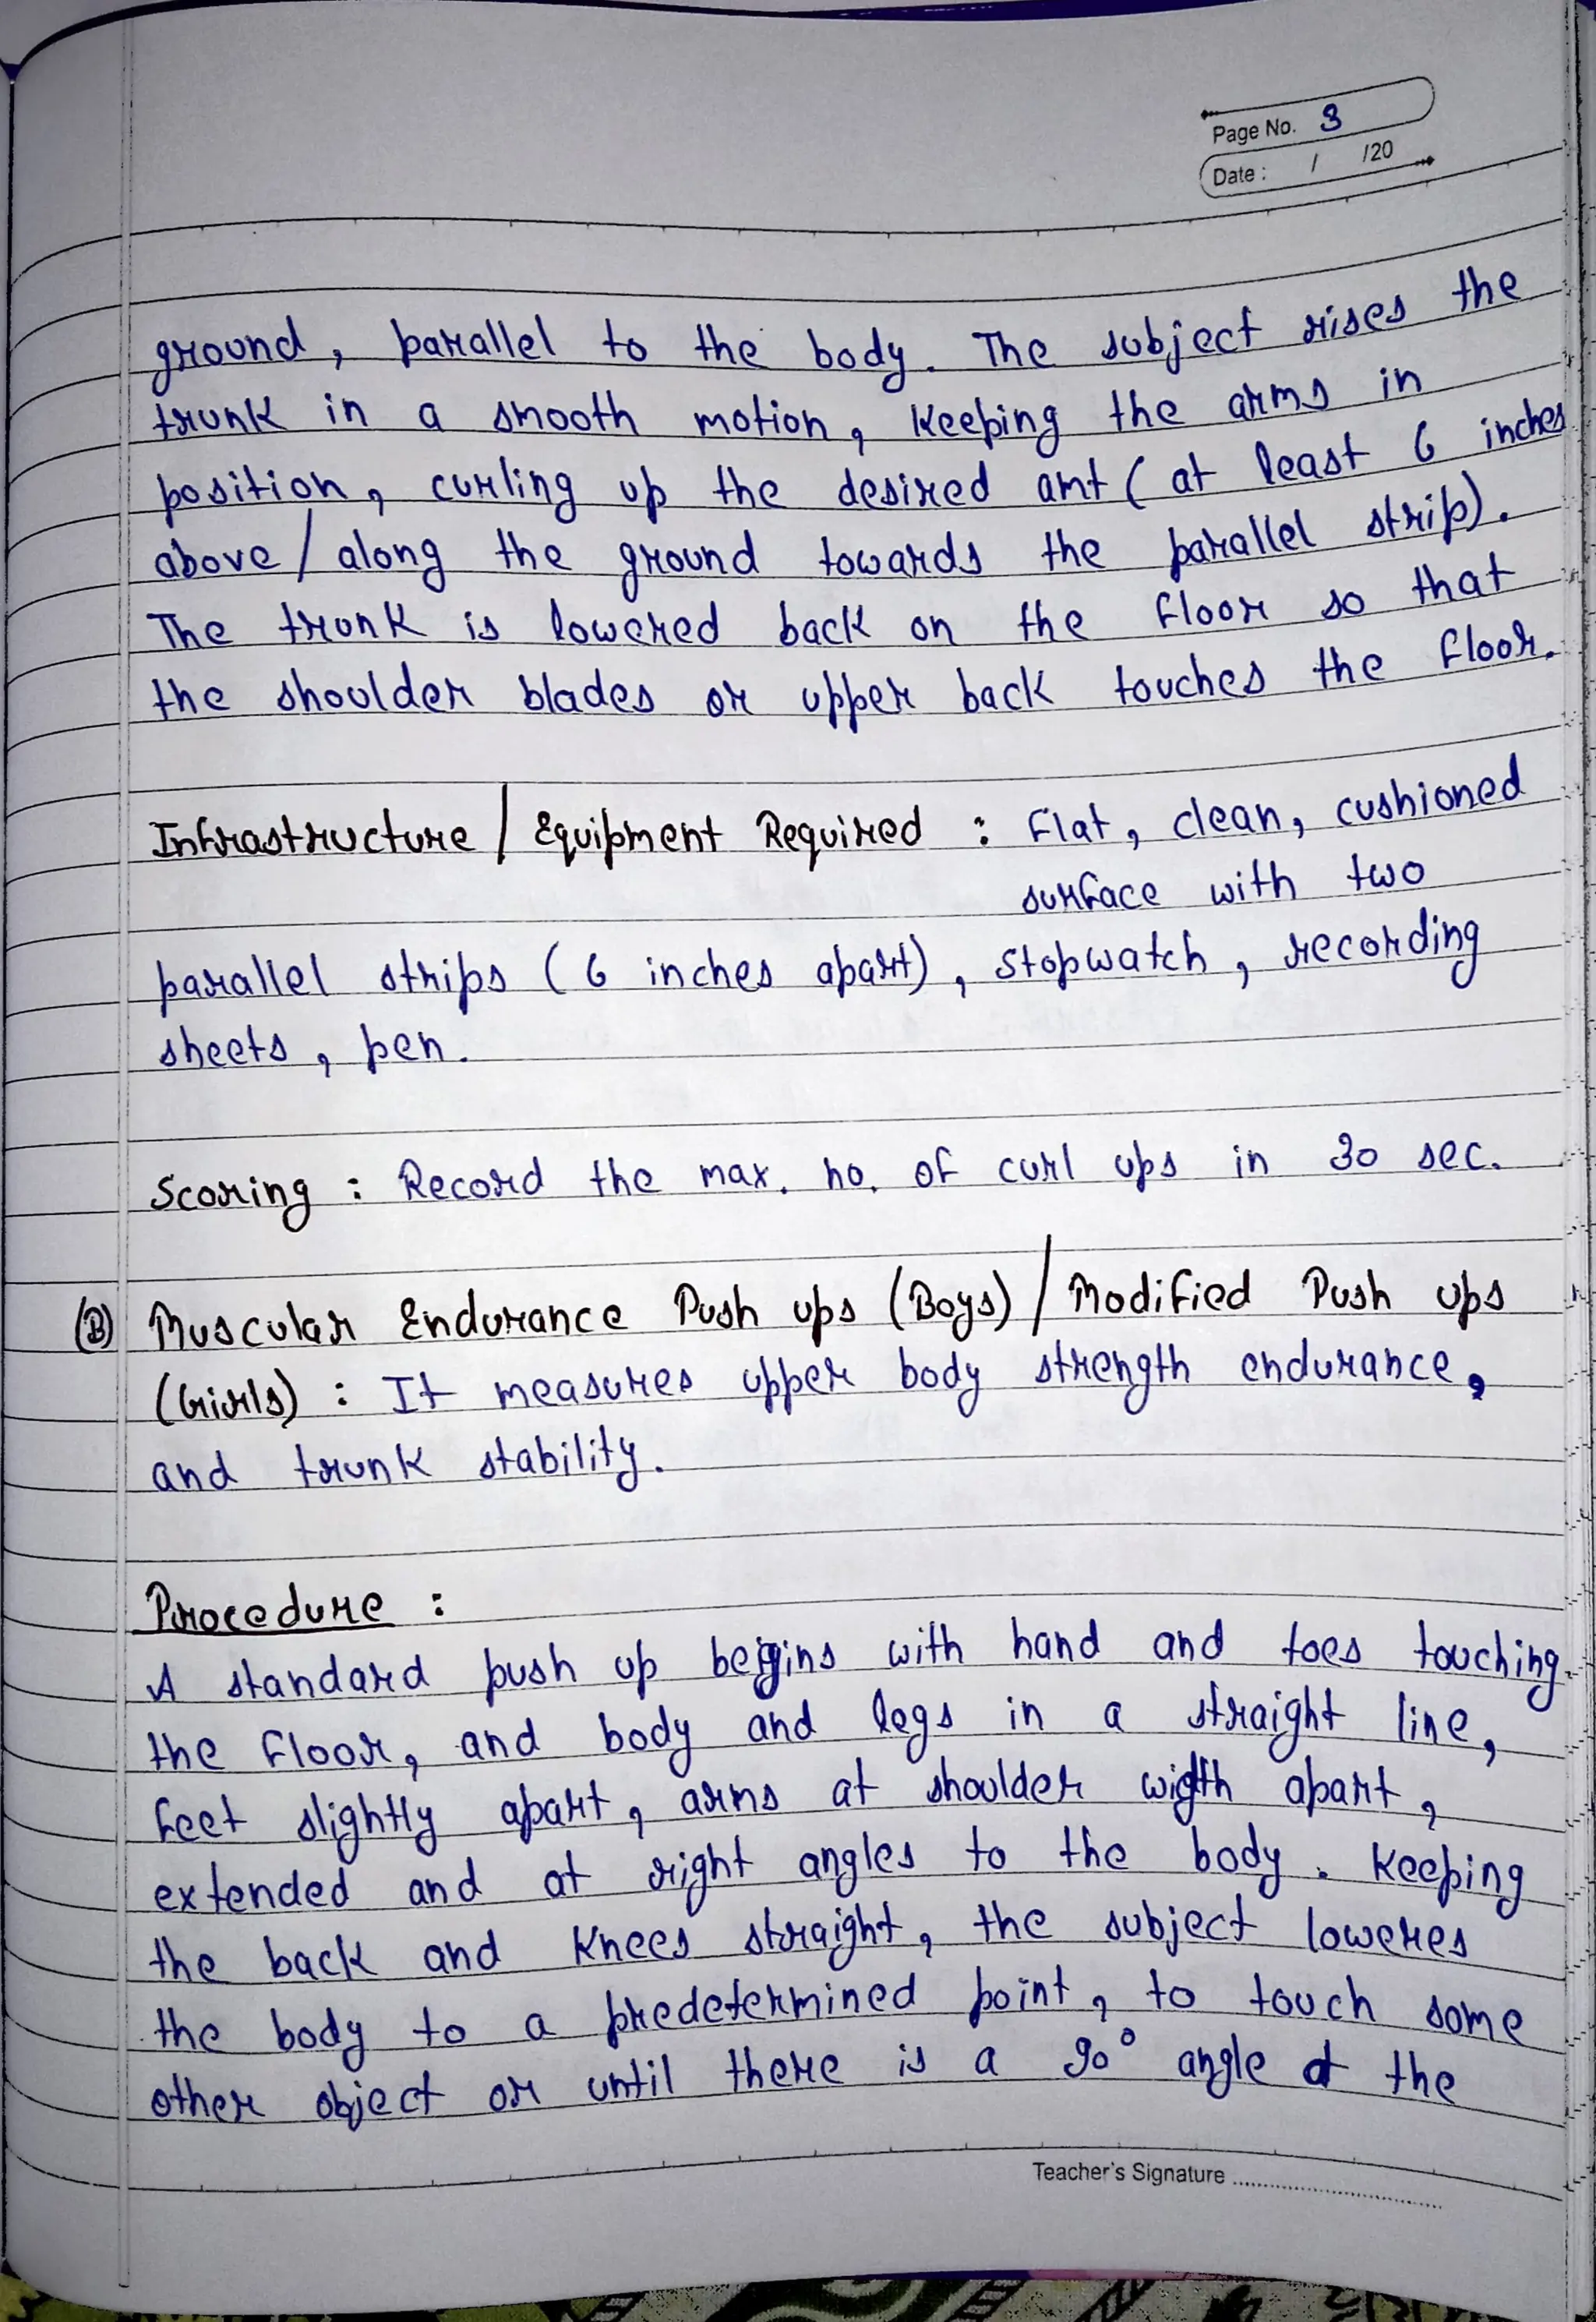 Page No. 3
Date : / /20
ground, parallel to the body. The subject rises the
trunk in a smooth motion, keeping the arms in
position, curling up the desired amt (at least 6 inches
above / along the ground towards the parallel strip).
The trunk is lowered back on the floor so that
the shoulder blades or upper back touches the floor.
Infrastructure / Equipment Required : Flat, clean, cushioned
surface with two
parallel strips (6 inches apart), stopwatch, recording
sheets, pen.
Scoring : Record the max. no. of curl ups in 30 sec.
(B) Muscular Endurance Push ups (Boys) / Modified Push ups
(Girls) : It measures upper body strength endurance,
and trunk stability.
Procedure :
A standard push up begins with hand and toes touching
the floor, and body and legs in a straight line,
feet slightly apart, arms at shoulder width apart,
extended and at right angles to the body. Keeping
the back and knees straight, the subject loweres
the body to a predetermined point, to touch some
other object or until there is a 90° angle at the
Teacher's Signature ..............................